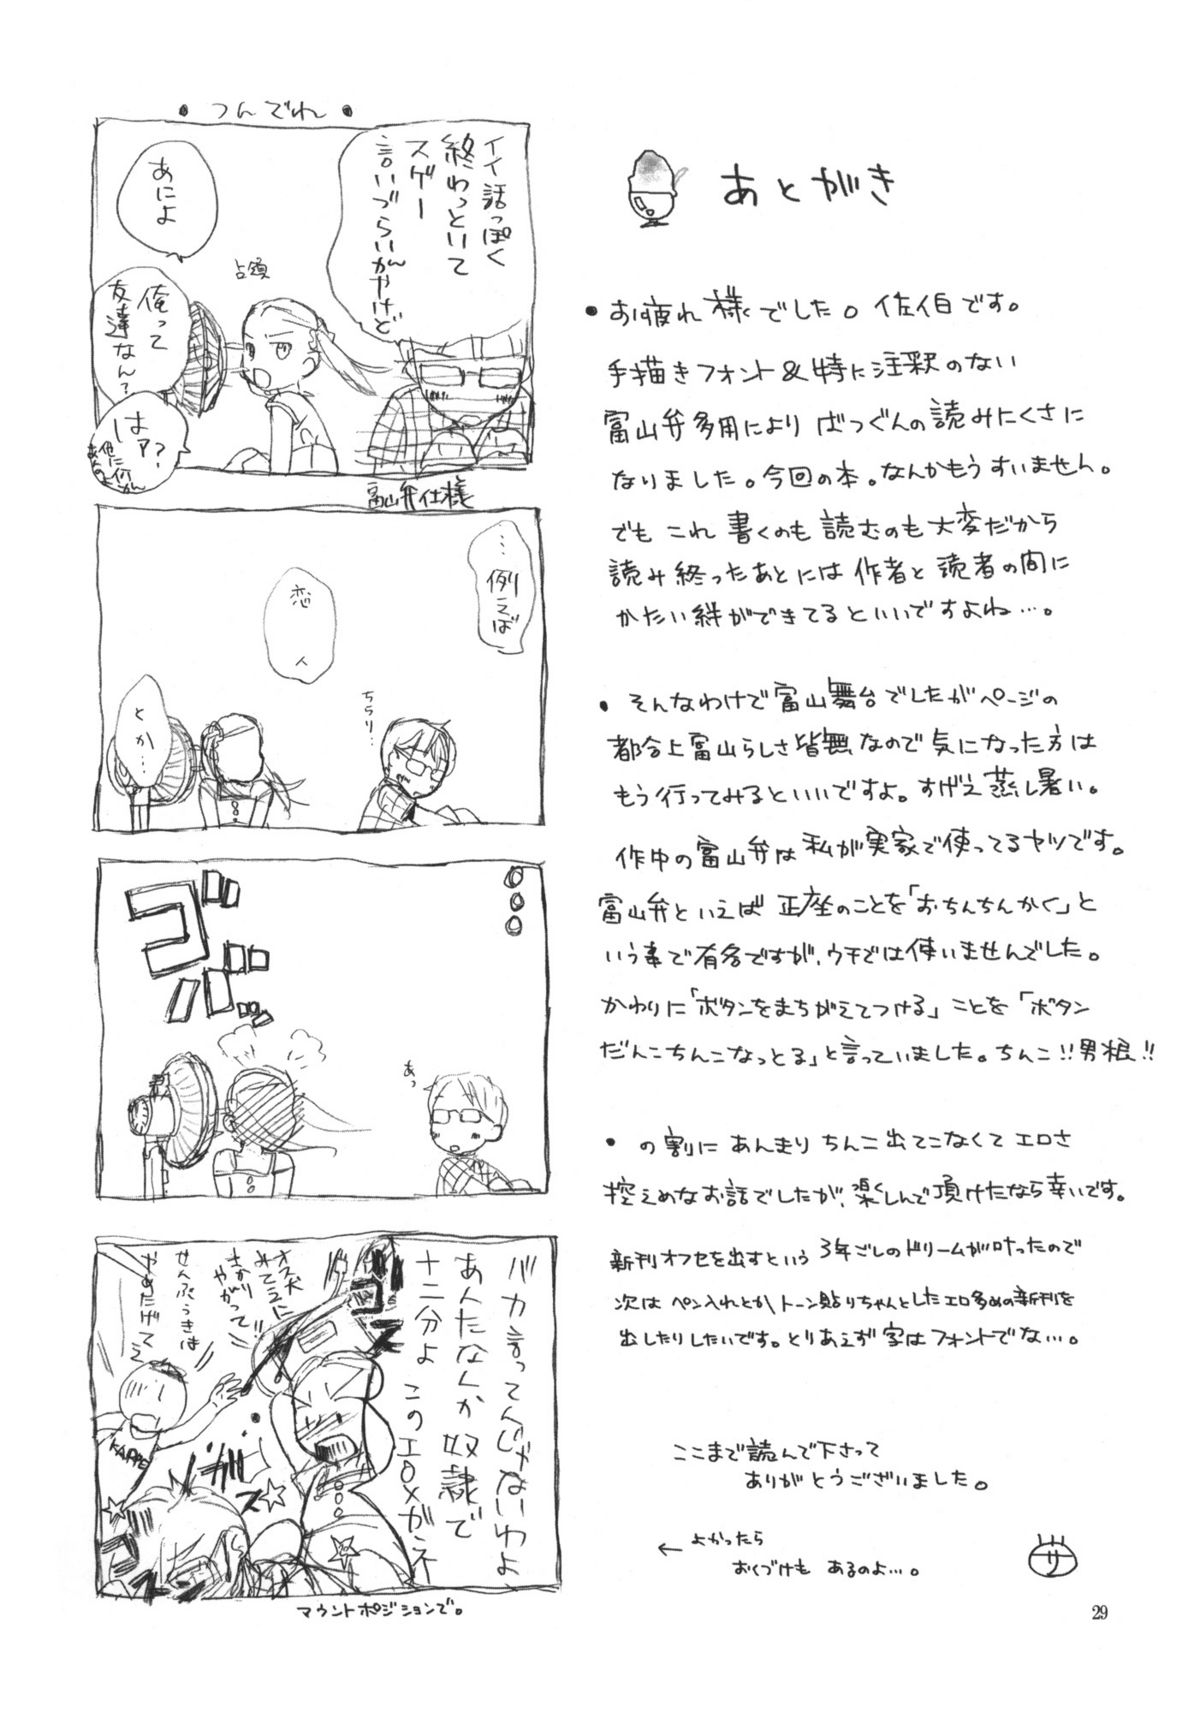 あとがき
• お疲れ様でした。佐伯です。
手描きフォント&特に注釈のない
富山弁多用により ばつぐんの読みにくさに
なりました。今回の本。なんかもうすいません。
でも これ 書くのも 読むのも 大変だから
読み終ったあとには 作者と 読者の間に
かたい絆ができてるといいですよね…。
• そんなわけで富山舞台でしたがページの
都合上富山らしさ皆無なので気になった方は
もう行ってみるといいですよ。すげえ蒸し暑い。
作中の富山弁は私が実家で使ってるヤツです。
富山弁といえば 正座のことを「おちんちんかく」と
いう事で有名ですが、ウチでは使いませんでした。
かわりに「ボタンをまちがえてつける」ことを「ボタン
だんこちんこなっとる」と言っていました。ちんこ!!男根!!
• の割に あんまり ちんこ出てこなくて エロさ
控えめなお話でしたが、楽しんで頂けたなら幸いです。
新刊オフセを出すという 3年ごしのドリームが叶ったので
次は ペン入れとか トーン貼りちゃんとしたエロ多めの新刊を
出したりしたいです。とりあえず字はフォントでな…。
ここまで読んで下さって
ありがとうございました。
← よかったら
おくづけも あるのよ…。
サ
29
• つんでれ •
イイ話っぽく
終わっといて
スゲー
言いづらいがんやけど
あによ
占領
俺って
友達なん?
はァ?
他に何が
あんのよ
富山弁仕様
…例えば
恋人
ちらり…
とか…
ゴ
ゴ
あっ
バカ言ってんじゃないわよ
あんたなんか奴隷で
十二分よ このエロメガネ
オス犬
みてえに
さかり
やがって!!
せんぷうきは
やめたげてえ
KAPPE
マウントポジションで。